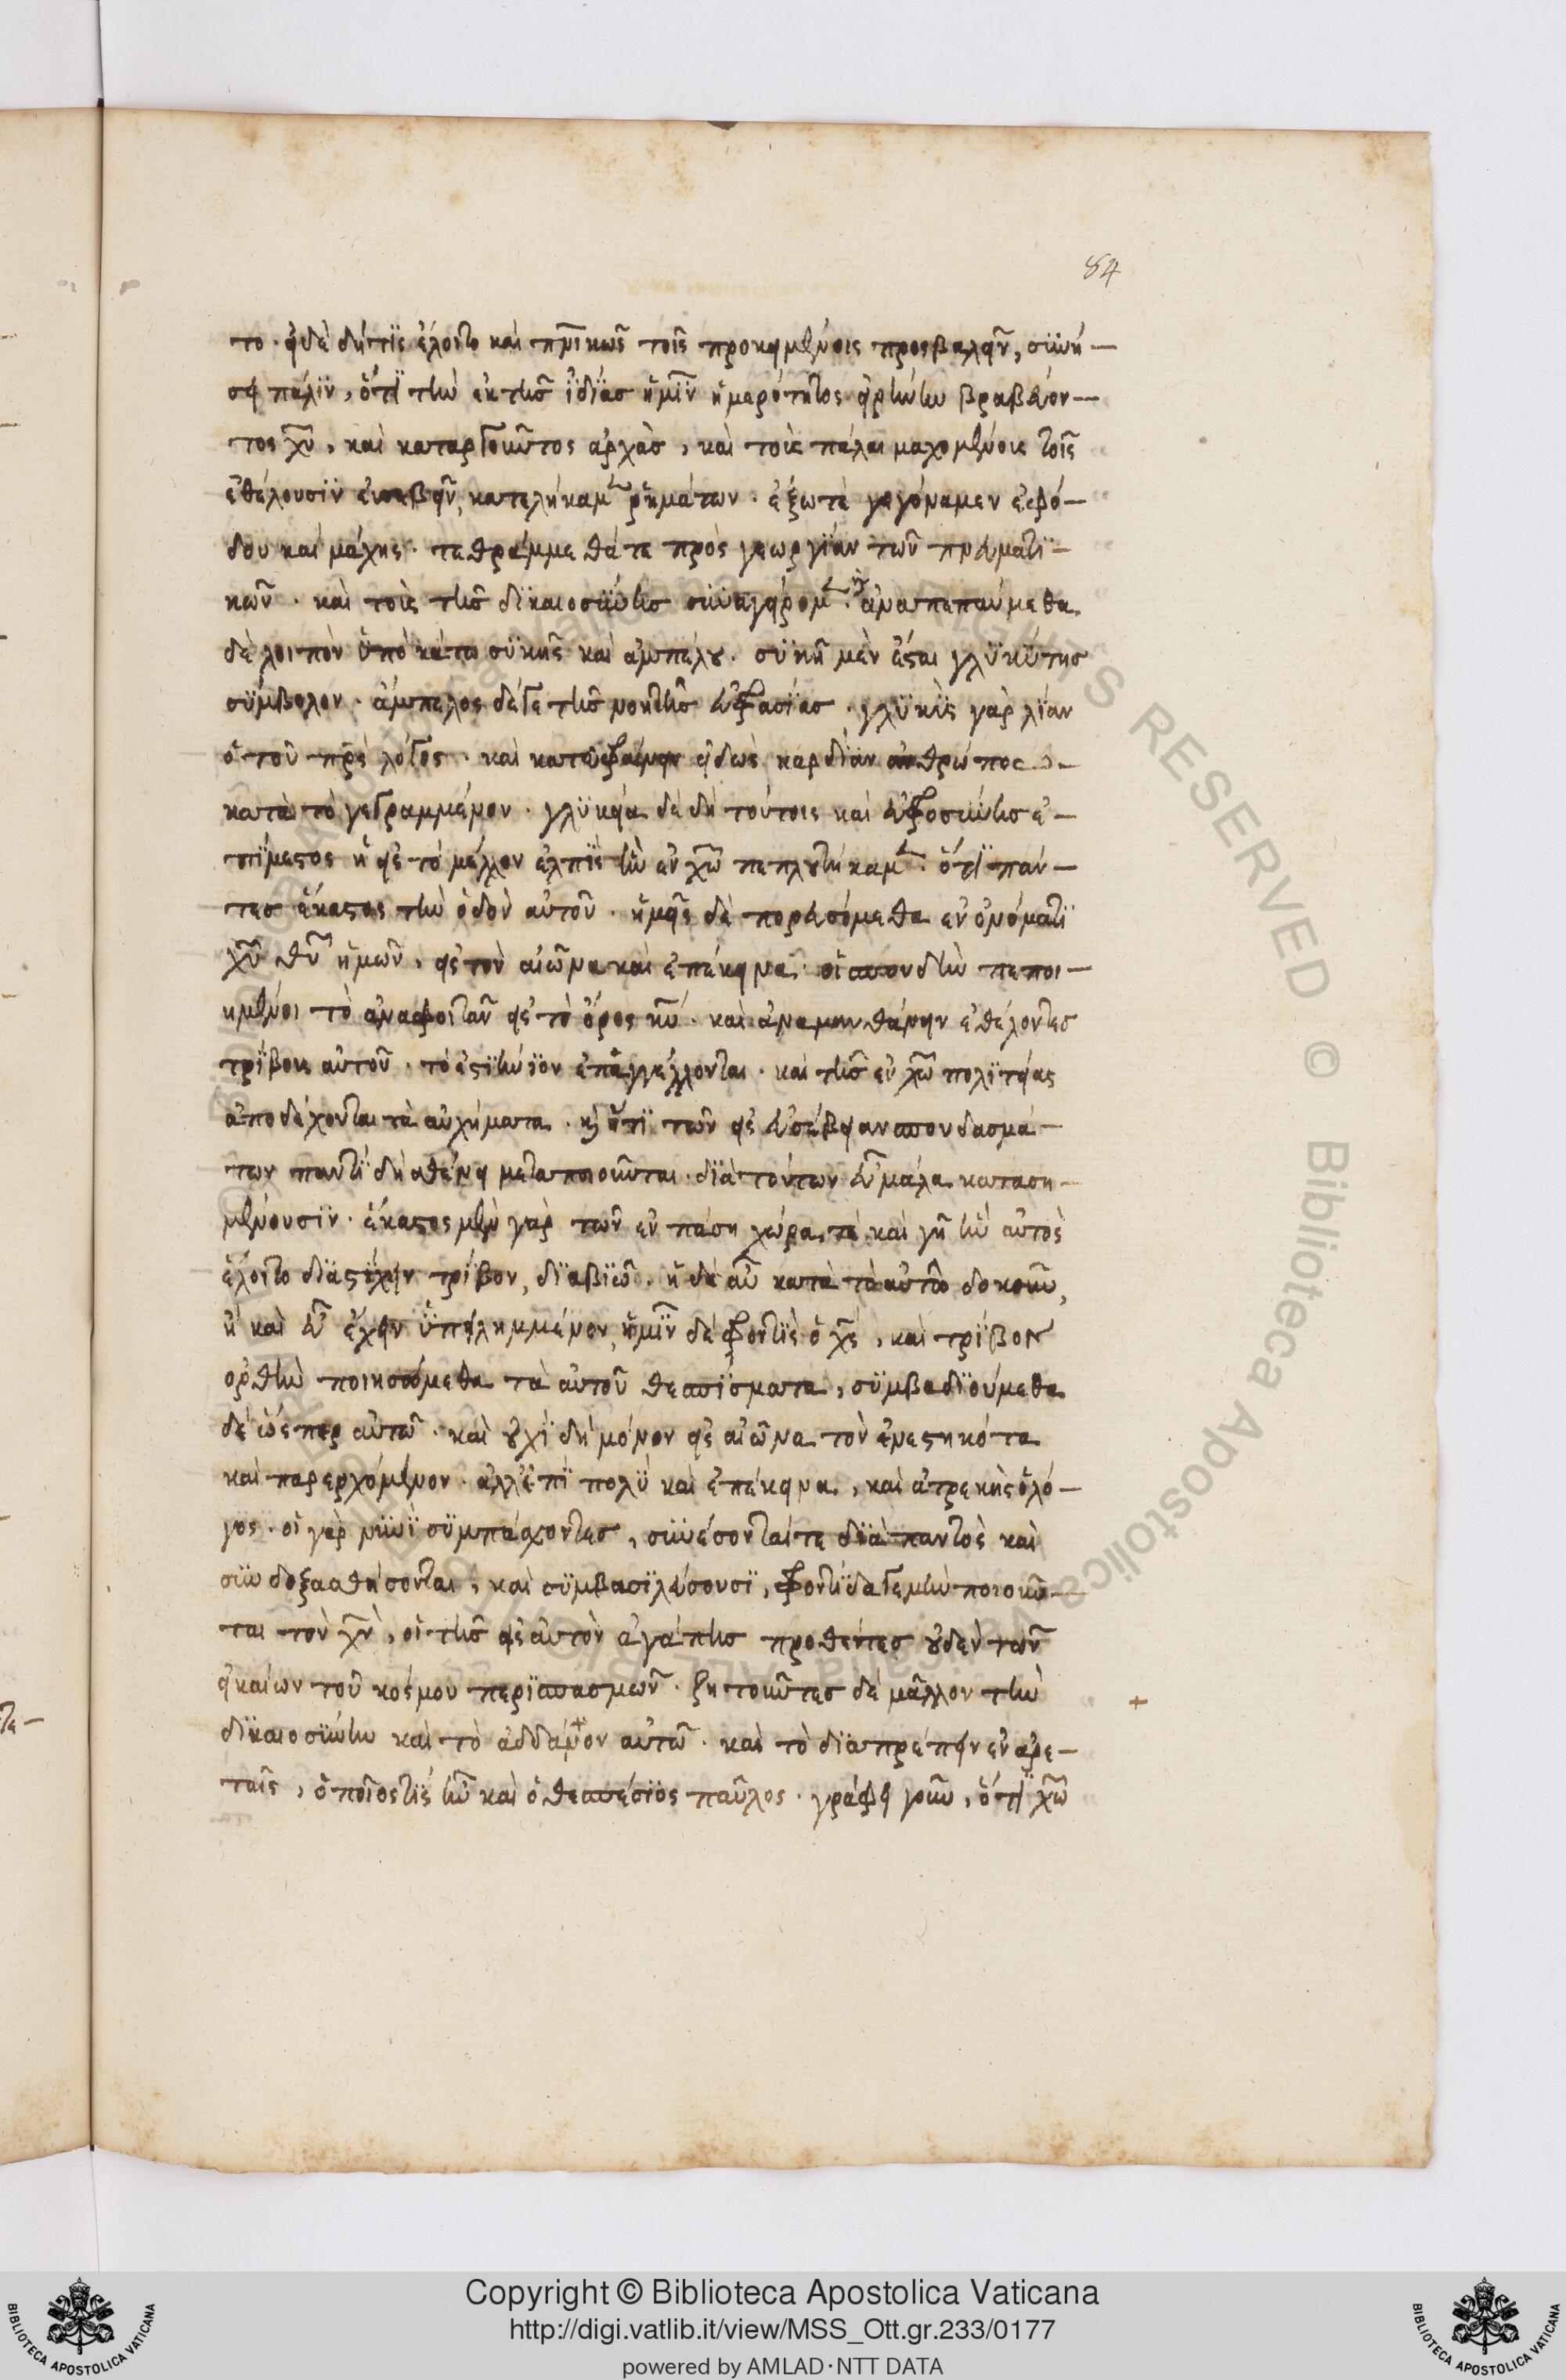 το· εἰ δὲ δήτις ἕλοιτο καὶ πνϊκῶς τοῖς προκειμένοις προσβαλεῖν, συνή—
σει πάλιν, ὅτι τὴν ἐκ τῆς ἰδίας ἡμῖν ἡμερότητος εἰρήνην βραβεύον—
τος χυ, καὶ καταργοῦντος ἀρχὰς, καὶ τοὶς πάλαι μαχομένοις τοῖς
ἐθέλουσιν εὐσεβεῖν, κατελήκαμεν ῥημάτων. ἔξω τὲ γεγόναμεν
δου καὶ μάχης· τεθράμμεθά τε πρὸς γεωργίαν τῶν πνευματι—
κῶν. καὶ τοὶς τῆς δικαιοσύνης συναγείρομεν. ἀναπεπαύμεθα
δὲ λοιπὸν ὑπὸ κάτω συκῆς καὶ ἀμπέλου. συκῆ μὲν ἔσται γλυκύτης
σύμβολον. ἄμπελος δέ γε τῆς νοητῆς εὐφρασίας. γλυκὺς γὰρ λίαν
ὁ τοῦ πρς λόγος. καὶ κατευφραίνειν εἰδὼς καρδίαν ἀνθρώπος —
κατὰ τὸ γεγραμμένον. γλυκεῖα δὲ δὴ τούτοις καὶ εὐφροσύνης ἐ—
πίμεστος ἡ εἰς τὸ μέλλον ἐλπὶς ἣν ἐν χῷ πεπλουτήκαμεν. ὅτι πάν—
τες ἕκαστος τὴν ὁδὸν αὐτοῦ. ἡμεῖς δὲ πορευσόμεθα ἐν ὀνόματι
χυ θυ ἡμῶν, εἰς τὸν αἰῶνα καὶ ἐπέκεινα. οἱ σπουδὴν πεποι—
ημένοι τὸ ἀναφοιτᾶν εἰς τὸ ὄρος κυ. καὶ ἀναμανθάνειν ἐθέλοντες
τρίβους αὐτοῦ. τὸ εὐήνιον ἐπαγγέλλονται. καὶ τῆς ἐν χῷ πολιτείας
ἀποδέχονται τὰ αὐχήματα. καὶ ὅτι τῶν εἰς εὐσέβειαν σπουδασμά—
των παντὶ δὴ σθένει μεταποιοῦνται. διὰ τούτων εὖ μάλα καταση—
μένουσιν. ἕκαστος μὲν γὰρ τῶν ἐν πάση χώρα τὲ καὶ γῆ ἣν αὐτὸς
ἕλοιτο διαστίχειν τρίβον, διαβιῶ. ἢ δὲ αὖ κατὰ τὸ αὐτῶ δοκοῦν,
ἢ καὶ εὖ ἔχειν ὑπειλημμένον, ἡμῖν δὲ φροντὶς ὁ χς, καὶ τρίβον
ὀρθὴν ποιησόμεθα τὰ αὐτοῦ θεσπίσματα, συμβαδιούμεθα
δὲ ὥσπερ αὐτῶ. καὶ οὐχὶ δὴ μόνον εἰς αἰῶνα τὸν ἐνεστηκότα
καὶ παρερχόμενον. ἀλλ' ἐπὶ πολὺ καὶ ἐπέκεινα, καὶ ἀτρεκὴς ὁ λό—
γος. οἱ γὰρ νυνὶ συμπάσχοντες, συνέσονταί τε διὰ παντὸς καὶ
συνδοξασθήσονται, καὶ συμβασιλεύσουσι, φροντίδα γε μὴν ποιοῦν—
ται τὸν χν, οἱ τῆς εἰς αὐτὸν ἀγάπης προθέντες οὐδὲν τῶν
εἰκαίων τοῦ κόσμου περισπασμῶν. ζητοῦντες δὲ μᾶλλον τὴν
δικαιοσύνην καὶ τὸ αὐτῶ. καὶ τὸ διαπρέπειν ἐν ἀρε—
ταῖς, ὁποῖος τίς ἦν καὶ ὁ θεσπέσιος παῦλος. γράφει γοῦν, ὅτι χῷ
84
Copyright © Biblioteca Apostolica Vaticana
http://digi.vatlib.it/view/MSS_Ott.gr.233/0177
powered by AMLAD·NTT DATA